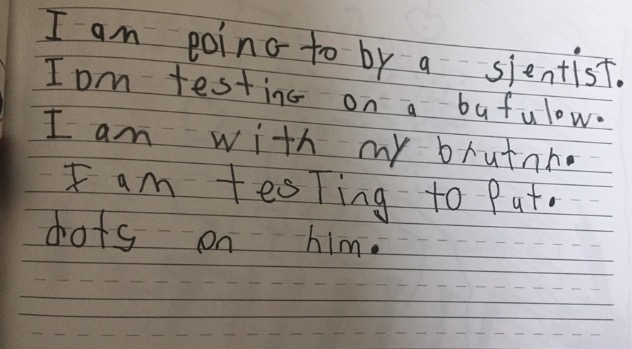 I am poinG to by a sientist.
I om testinG on a bufulow.
I am with my brutnr.
I am tesTing to Put.
dots on him.